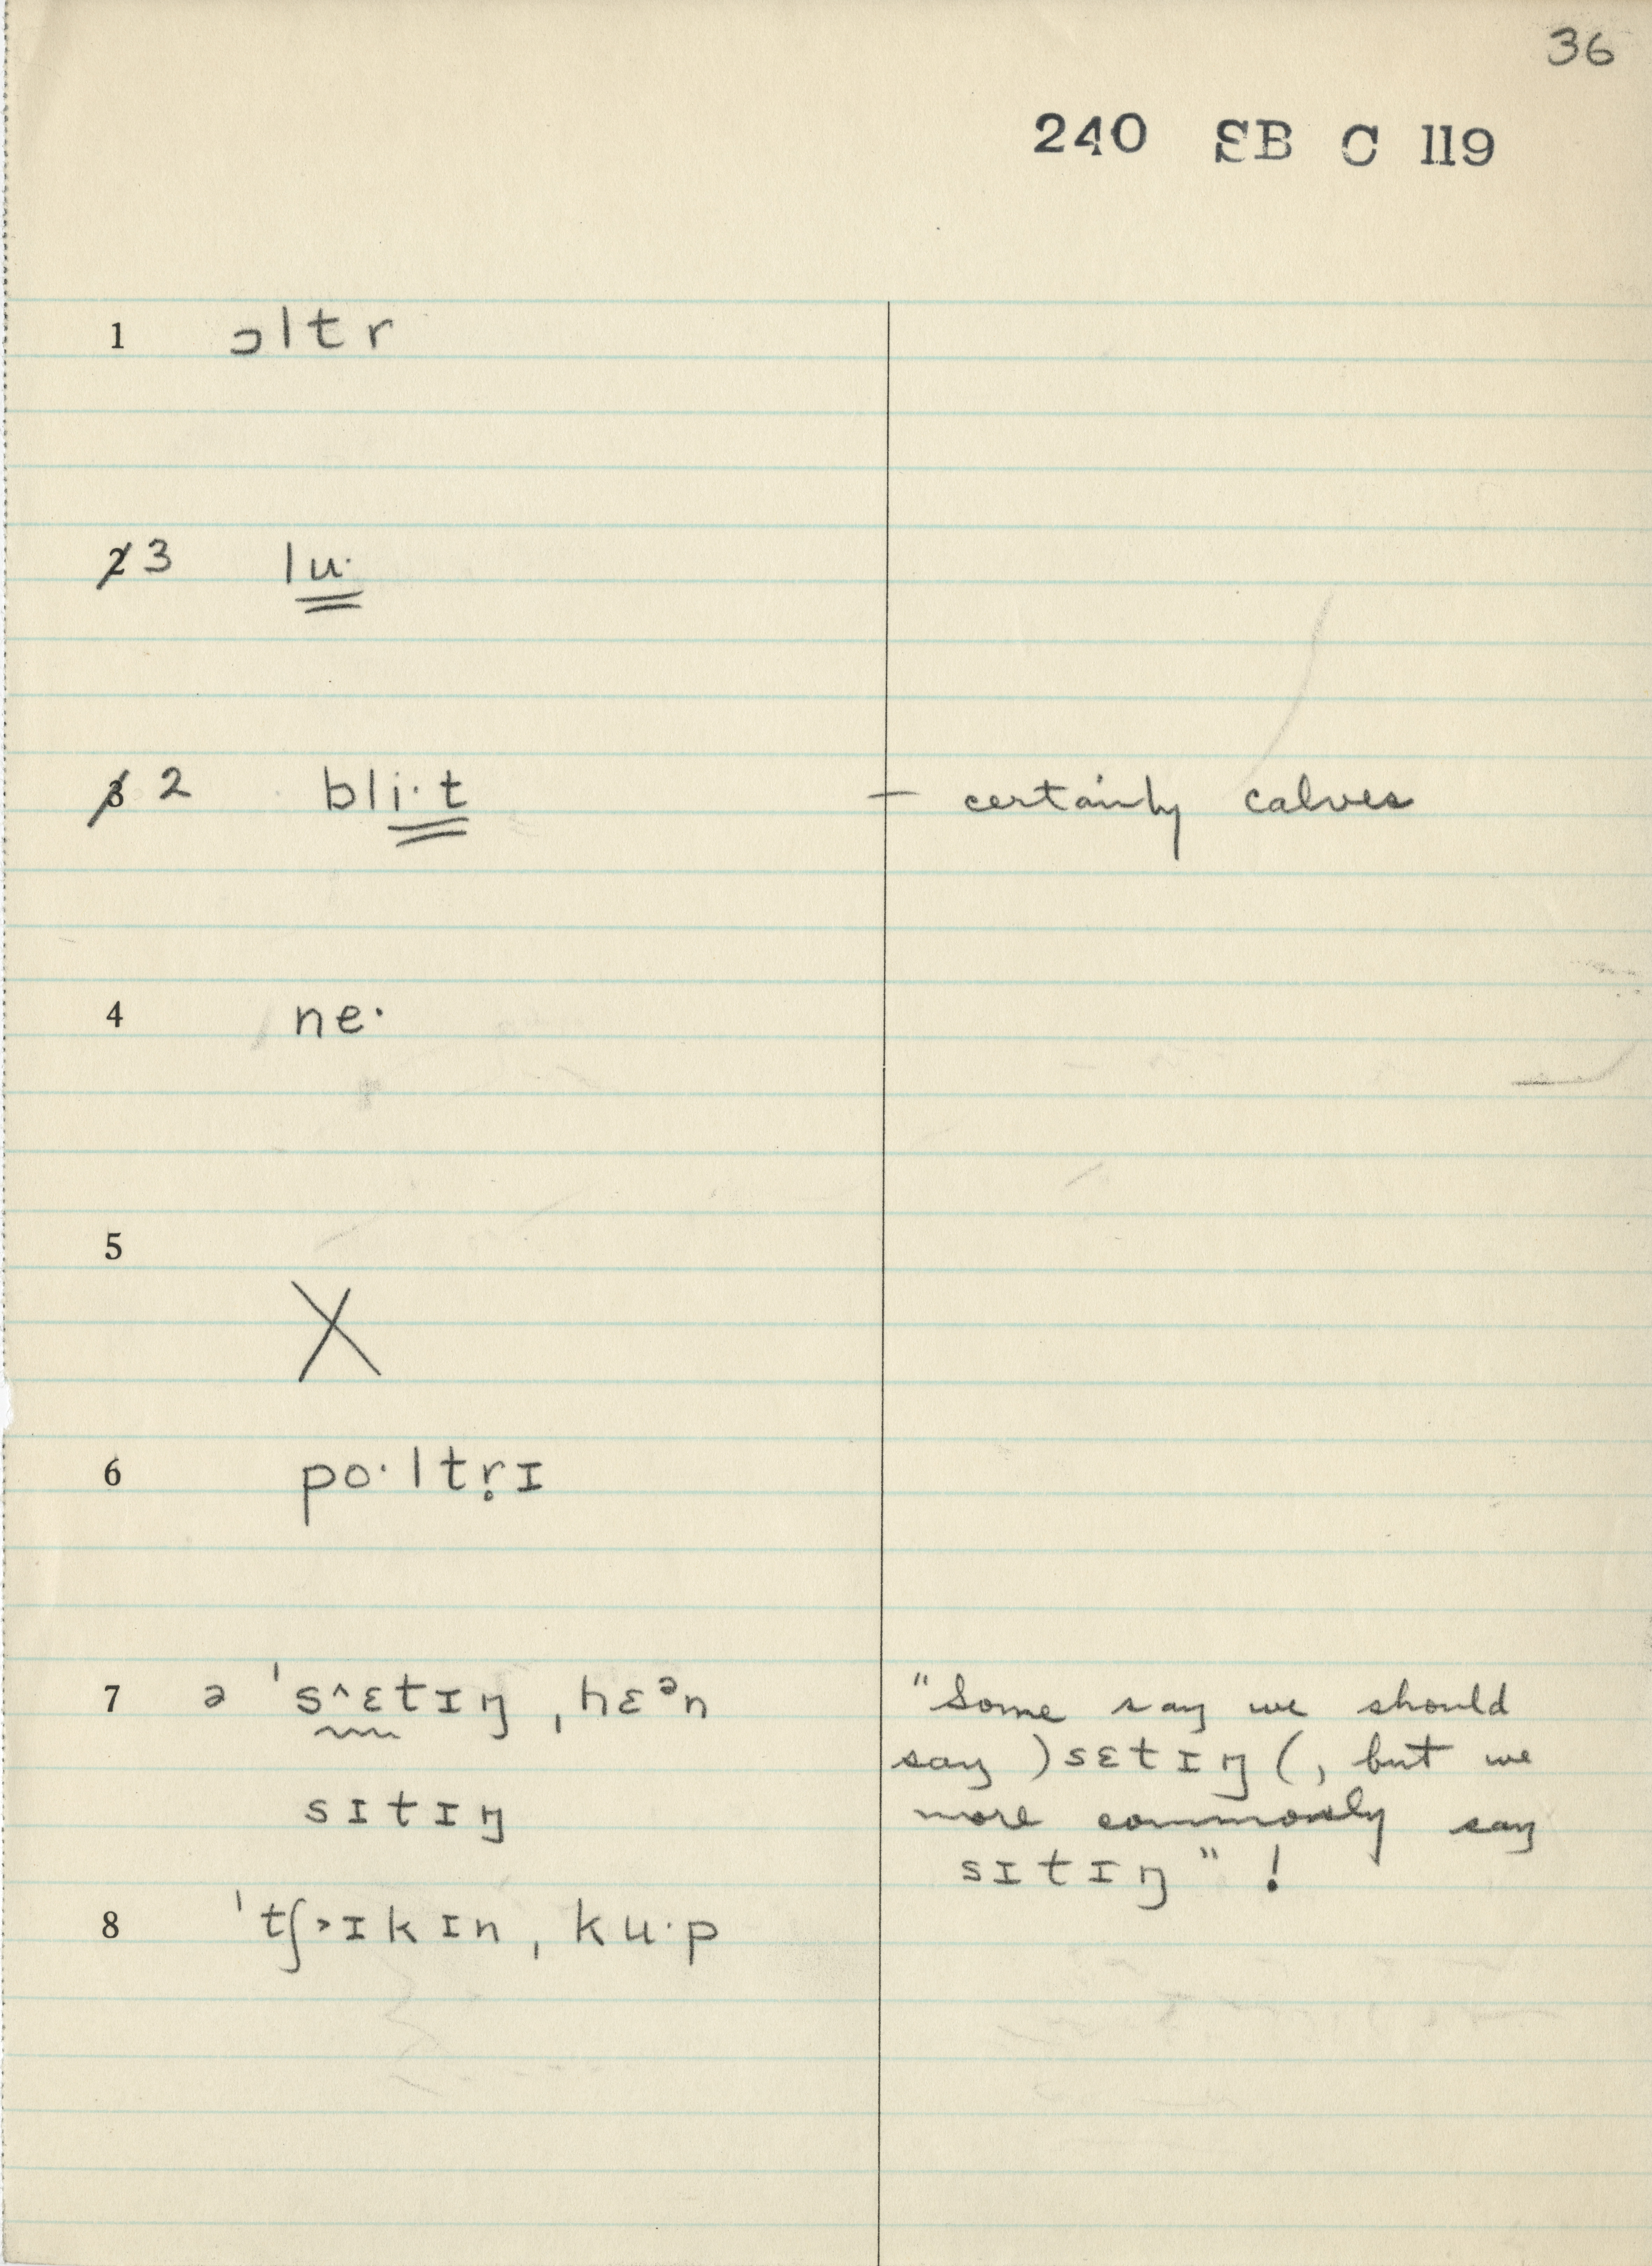 36
240 SB C 119
1 ɔltr
2 3 lu·
3 2 bli·t – certainly calves
4 ne·
5 X
6 po·ltṛɪ
7 ə ˈs^ɛtɪŋ ˌhɛᵊn "Some say we should
say )sɛtɪŋ(, but we
sɪtɪŋ more commonly say
sɪtɪŋ" !
8 ˈtʃ˃ɪkɪn ˌku·p